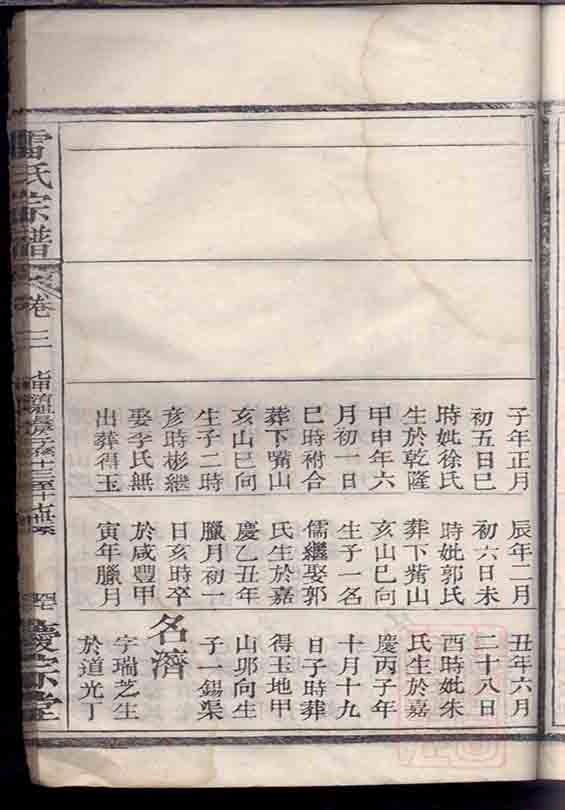 子年正月
初五日巳
時妣徐氏
生於乾隆
甲申年六
月初一日
巳時祔合
葬下嘴山
亥山巳向
生子二時
彥時彬繼
娶李氏無
出葬得玉
辰年二月
初六日未
時妣郭氏
葬下嘴山
亥山巳向
生子一名
儒繼娶郭
氏生於嘉
慶乙丑年
臘月初一
日亥時卒
於咸豐甲
寅年臘月
丑年六月
二十八日
酉時妣朱
氏生於嘉
慶丙子年
十月十九
日子時葬
得玉地甲
山耶向生
子一錫渠
名濟
字瑞芝生
於道光丁
雷氏宗譜
卷三
慶宗堂